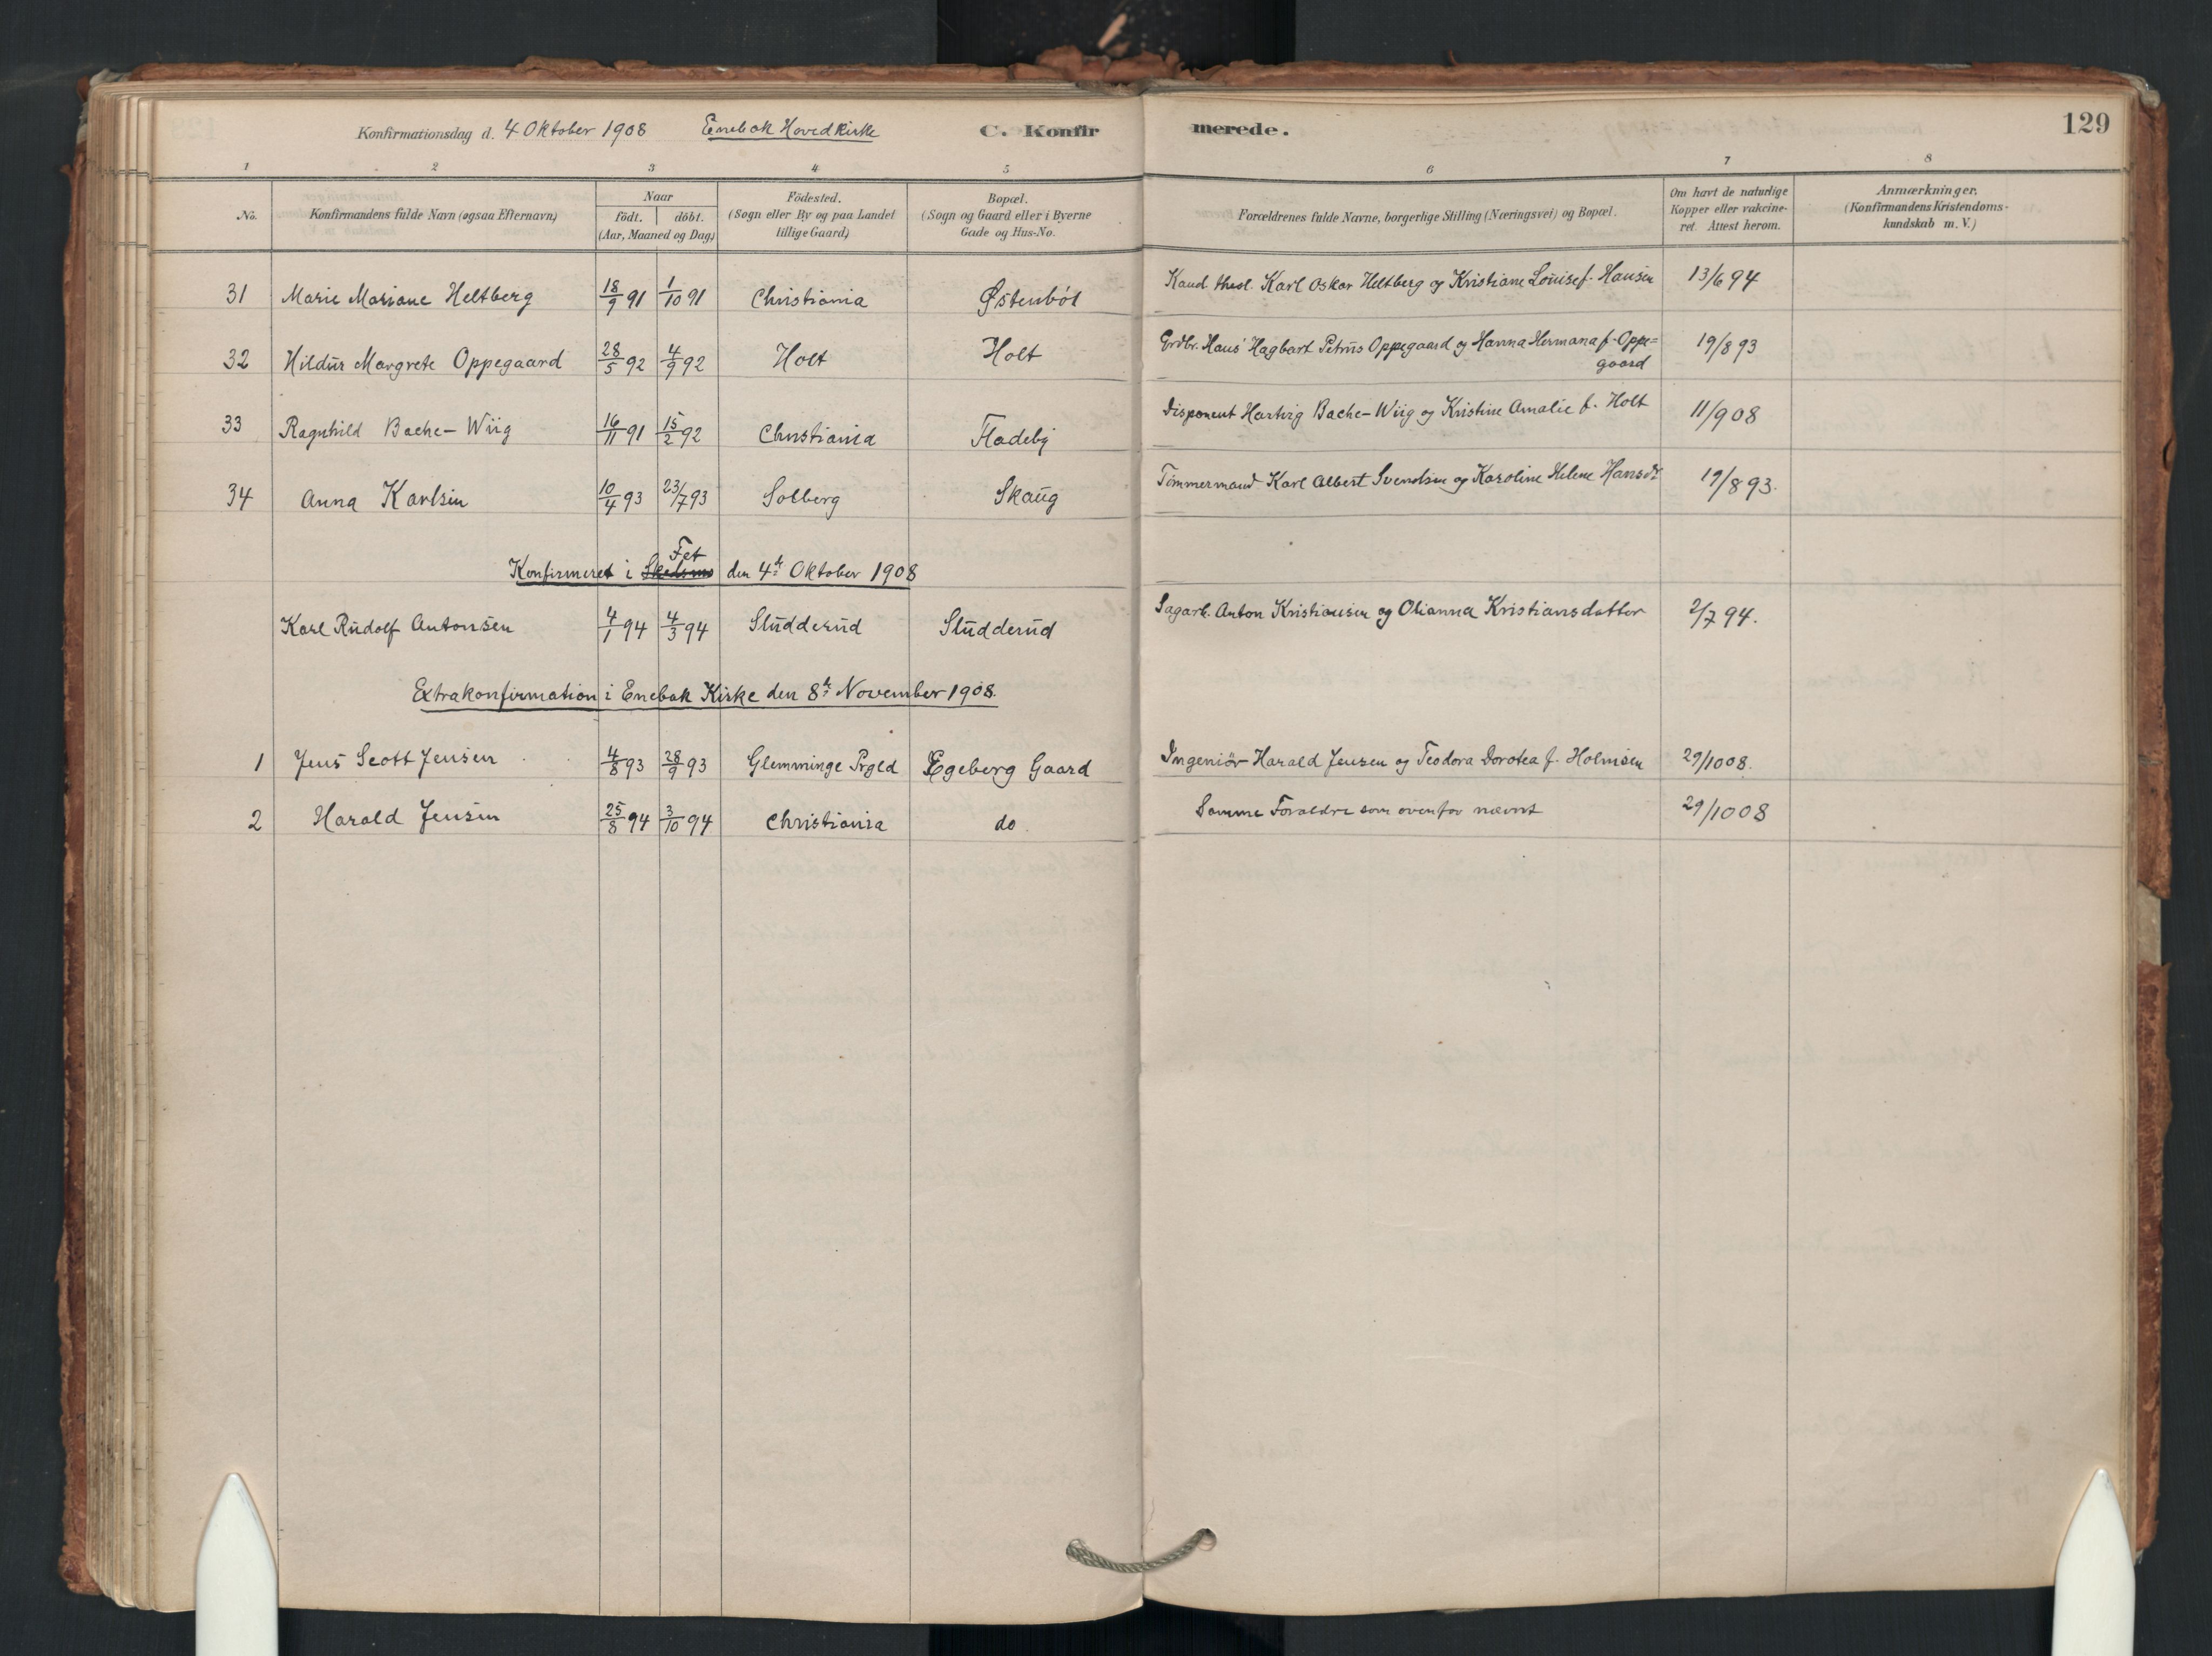 Konfirmationsdag d. 4 Oktober 1908 Enebak Hovedkirke C. Konfirmerede. 129
1 2 3 4 5 6 7 8
No. Konfirmandens fulde Navn (ogsaa Efternavn) Naar födt. döbt. (Aar, Maaned og Dag) Födested. (Sogn eller By og paa Landet tillige Gaard) Bopæl. (Sogn og Gaard eller i Byerne Gade og Hus-No. Forældrenes fulde Navne, borgerlige Stilling (Næringsvei) og Bopæl. Om havt de naturlige Kopper eller vakcineret. Attest herom. Anmærkninger. (Konfirmandens Kristendomskundskab m. V.)
31 Marie Mariane Heltberg 18/9 91 1/10 91 Christiania Østenböl Kand. theol. Karl Oskar Heltberg og Kristiane Louise f. Hansen 13/6 94
32 Hildur Margrete Oppegaard 28/5 92 4/9 92 Holt Holt Grdbr. Hans Hagbart Petrus Oppegaard og Hanna Hermana f. Oppe=
gaard 19/8 93
33 Ragnhild Bache-Wiig 16/11 91 15/2 92 Christiania Fladeby Disponent Hartvig Bache-Wiig og Kristine Amalie f. Holt 11/9 08
34 Anna Karlsen 10/4 93 23/7 93 Solberg Skaug Tömmermand Karl Albert Svendsen og Karoline Helene Hansdt. 19/8 93.
Fet
Konfirmeret i Skedsmo den 4de Oktober 1908
Karl Rudolf Antonsen 4/1 94 4/3 94 Sludderud Sludderud Sagarb. Anton Kristiansen og Olianna Kristiansdatter 2/7 94.
Extrakonfirmation i Enebak Kirke den 8de November 1908.
1 Jens Scott Jensen 4/8 93 28/9 93 Glemminge Prgld Egeberg Gaard Ingeniör Harald Jensen og Teodora Dorotea f. Holmsen 29/10 08.
2 Harald Jensen 25/8 94 3/10 94 Christiania do Samme Foraldre som ovenfor nævnt 29/10 08